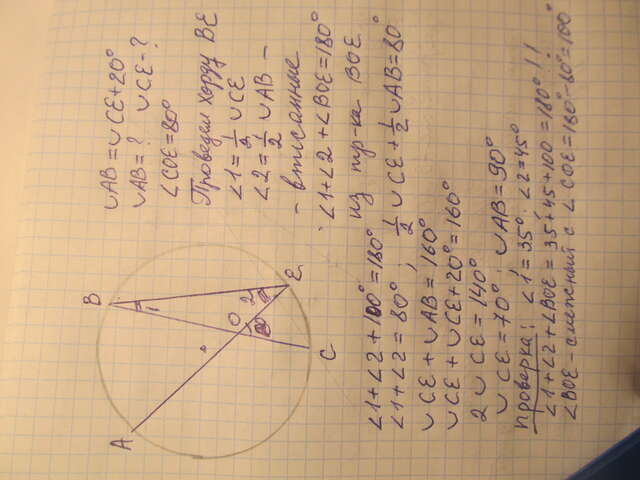 B
A
1
O
2
80
E
C
∪AB=∪CE+20°
∪AB=? ∪CE-?
∠COE=80°
Проведем хорду BE
∠1=1/2 ∪CE
∠2=1/2 ∪AB -
- вписанные
∠1+∠2+∠BOE=180°
из тр-ка BOE
∠1+∠2+100°=180°
∠1+∠2=80° ; 1/2 ∪CE+1/2 ∪AB=80°
∪CE+∪AB=160°
∪CE+∪CE+20°=160°
2∪CE=140°
∪CE=70° ; ∪AB=90°
Проверка: ∠1=35°; ∠2=45°
∠1+∠2+∠BOE=35+45+100=180° !!
∠BOE-смежный с ∠COE=180°-80°=100°